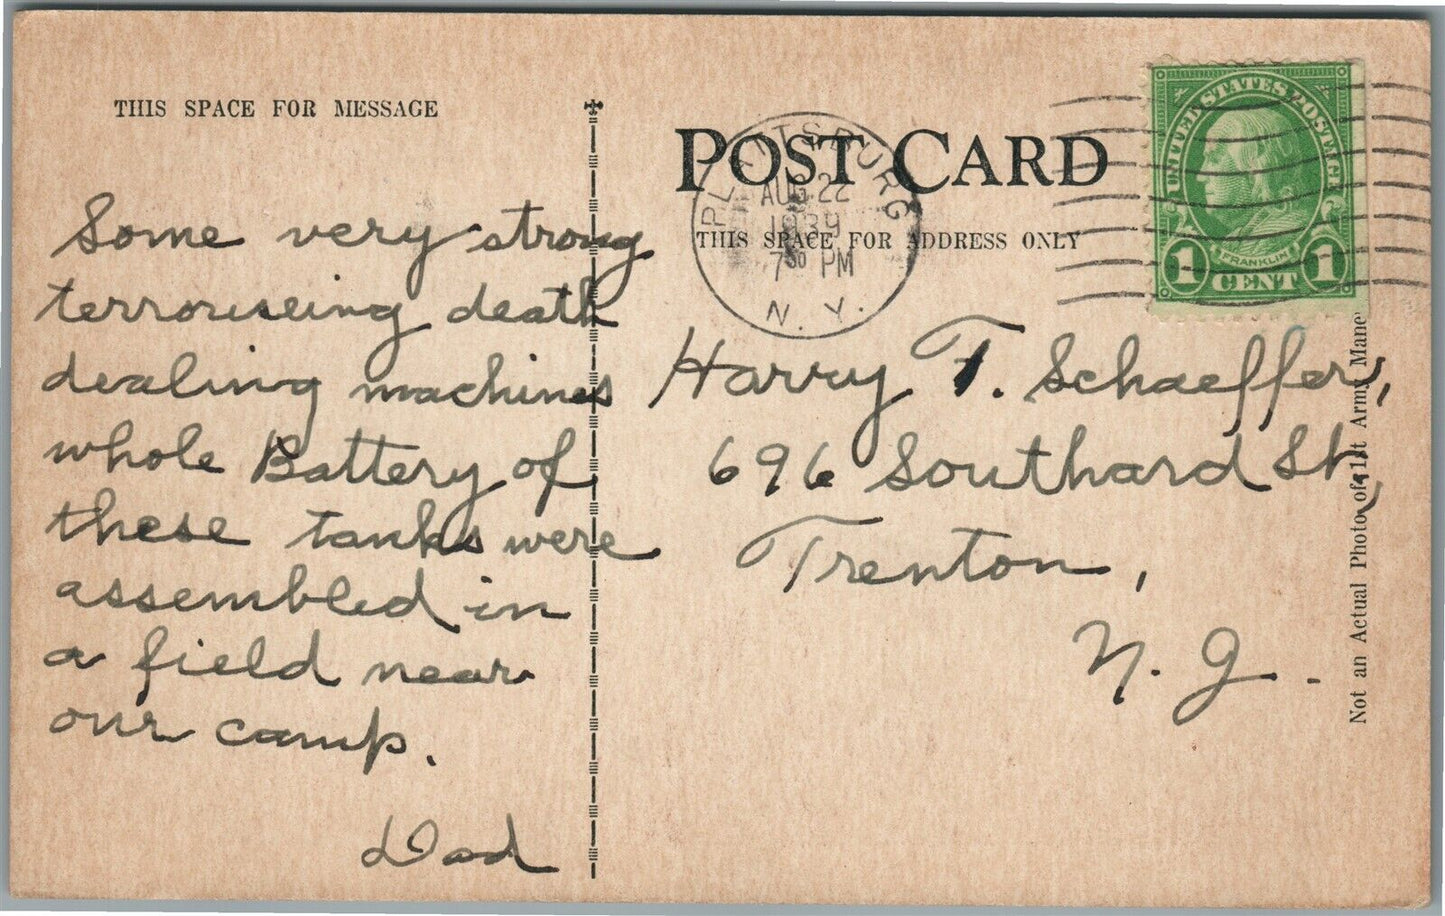 THIS SPACE FOR MESSAGE
Some very strong
terrouseing death
dealing machines
whole Battery of
these tanks were
assembled in
a field near
our camp.
Dad
POST CARD
THIS SPACE FOR ADDRESS ONLY
PLATTSBURG
AUG 22
1939
7 30 PM
N. Y.
UNITED STATES POSTAGE
FRANKLIN
1 CENT 1
Harry F. Schaeffer,
696 Southard St,
Trenton,
N. J.
Not an Actual Photo of 1st Army Mane